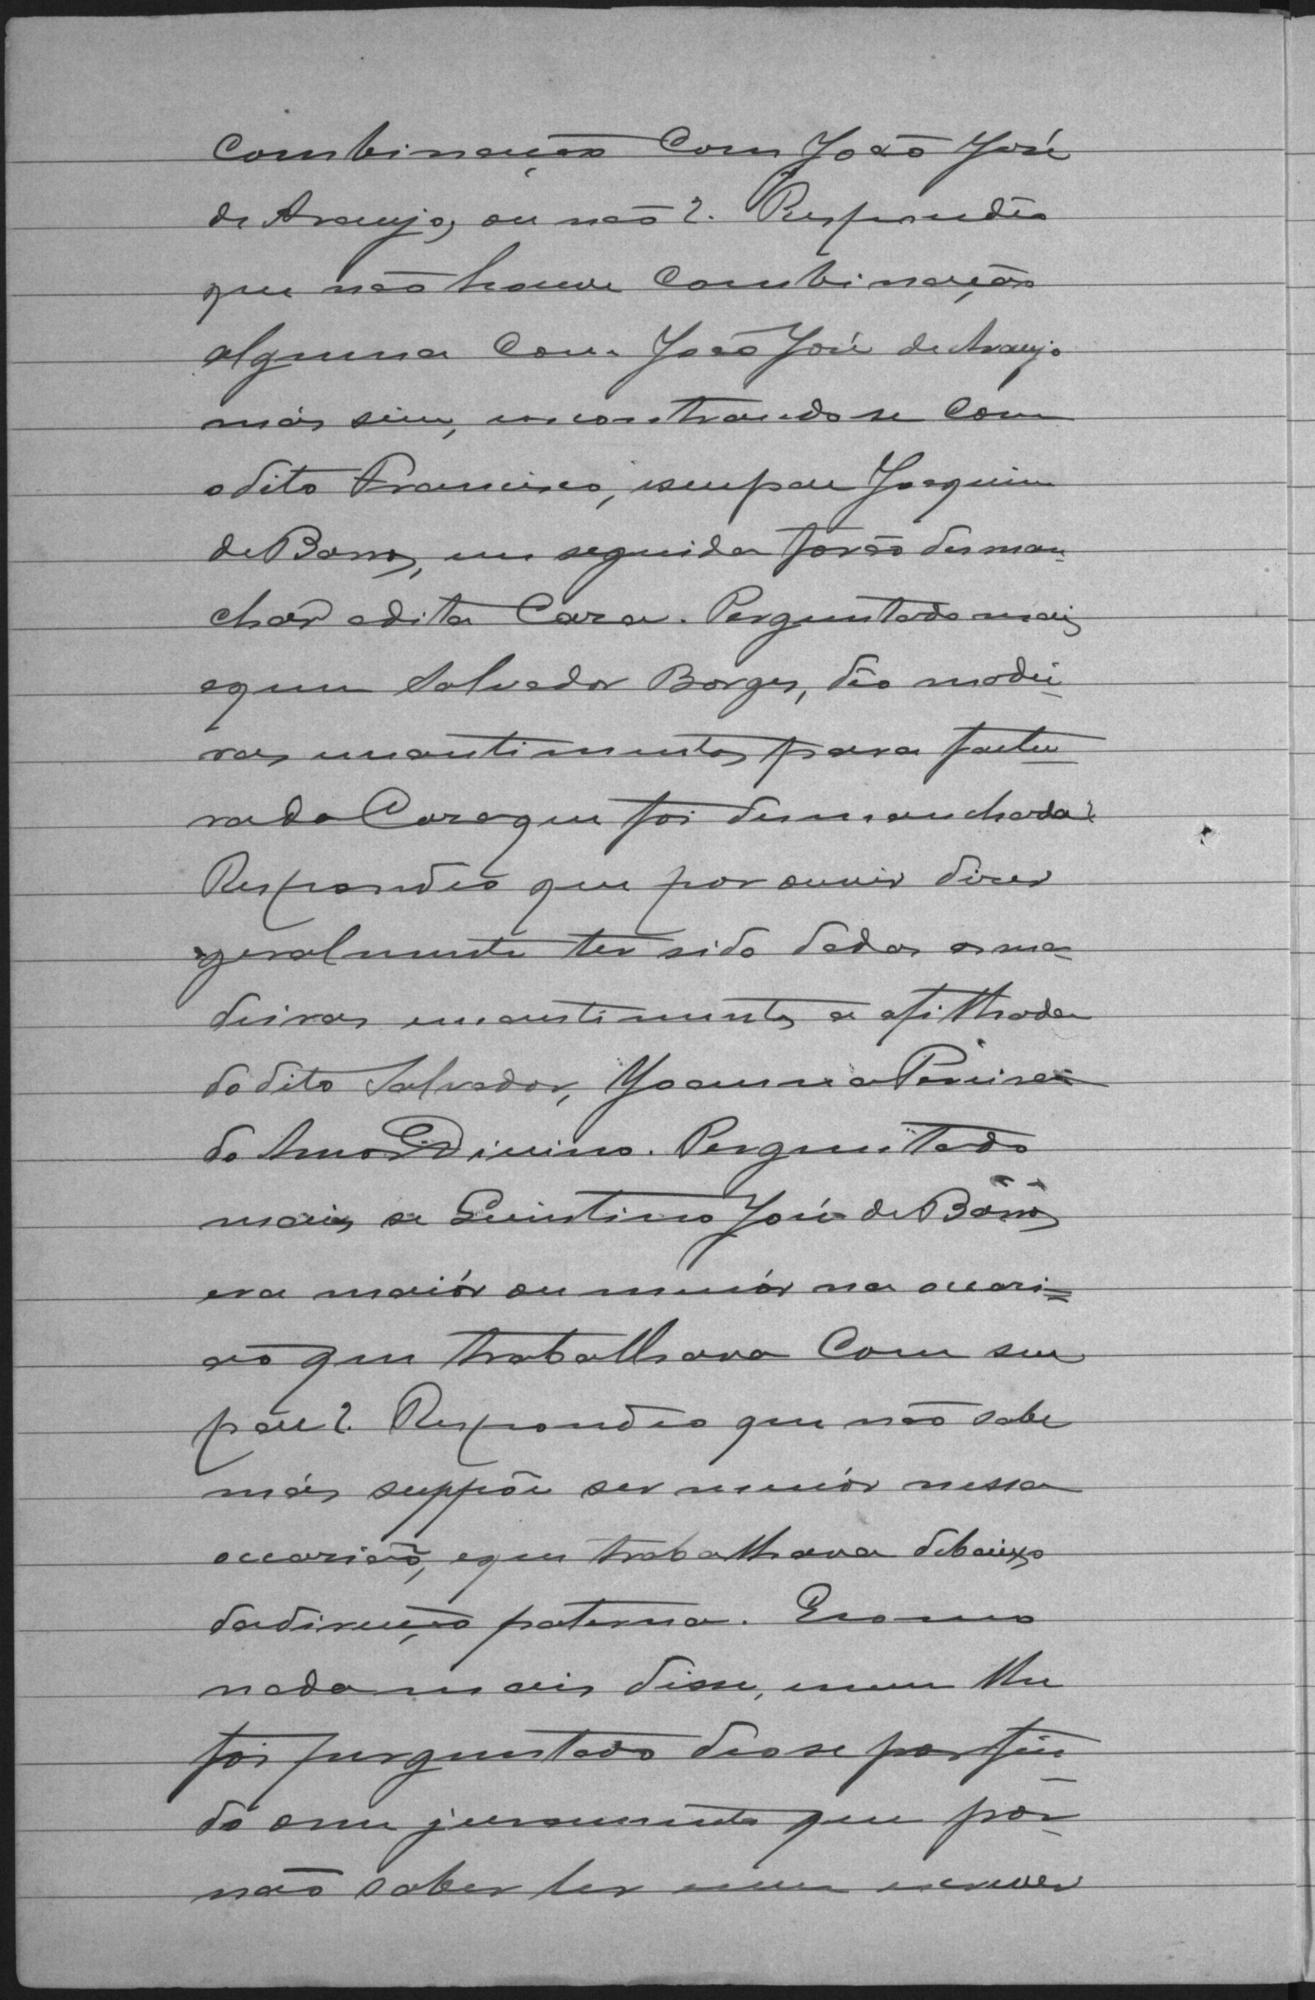 combinação Com João José
de Araujo, ou não?. Respondêo
que não houve Combinação
alguma Com João José de Araujo
más sim, encontrando se Com
o dito Francisco, eseupae Joaquim
de Barros, em seguida forão desman
char adita Caza. Perguntado mais
equem Salvador Borges, dêo madei
ras emantimentos para factu
rada Cazaque foi desmanchada?
Respondeo que por ouvir dizer
geralmente ter sido dadas asma=
deiras emantimentos a afilhada
dodito Salvador, Joanna Pereira
do Amor Divino. Perguntado
mais, se Quintino José de Barros
era maiór ou menór na occazi=
ão que trabalhava Com seu
pae?. Respondeo que não sabe
más suppõe ser menór nessa
occazião, eque trabalhava debaixo
dadireção paterna. Ecomo
nada mais disse, enem lhe
foi perguntado deose porfin
do oseu juramento que por
não saber ler enem escrever